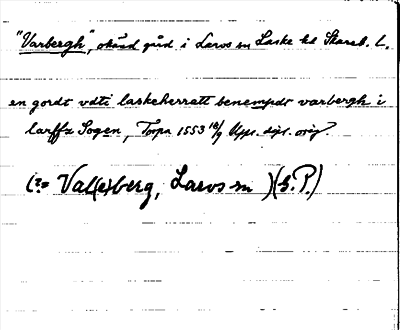 "Varbergh", okänd gård i Larvs sn Laske hd Skarab. l.
en gordt vdti laskeherrett benempdt varbergh i
larffz Sogen, Torpa 1553 18/9 Upps. dipl. orig.
(?= Val(e)berg, Larvs sn )(G.P.)